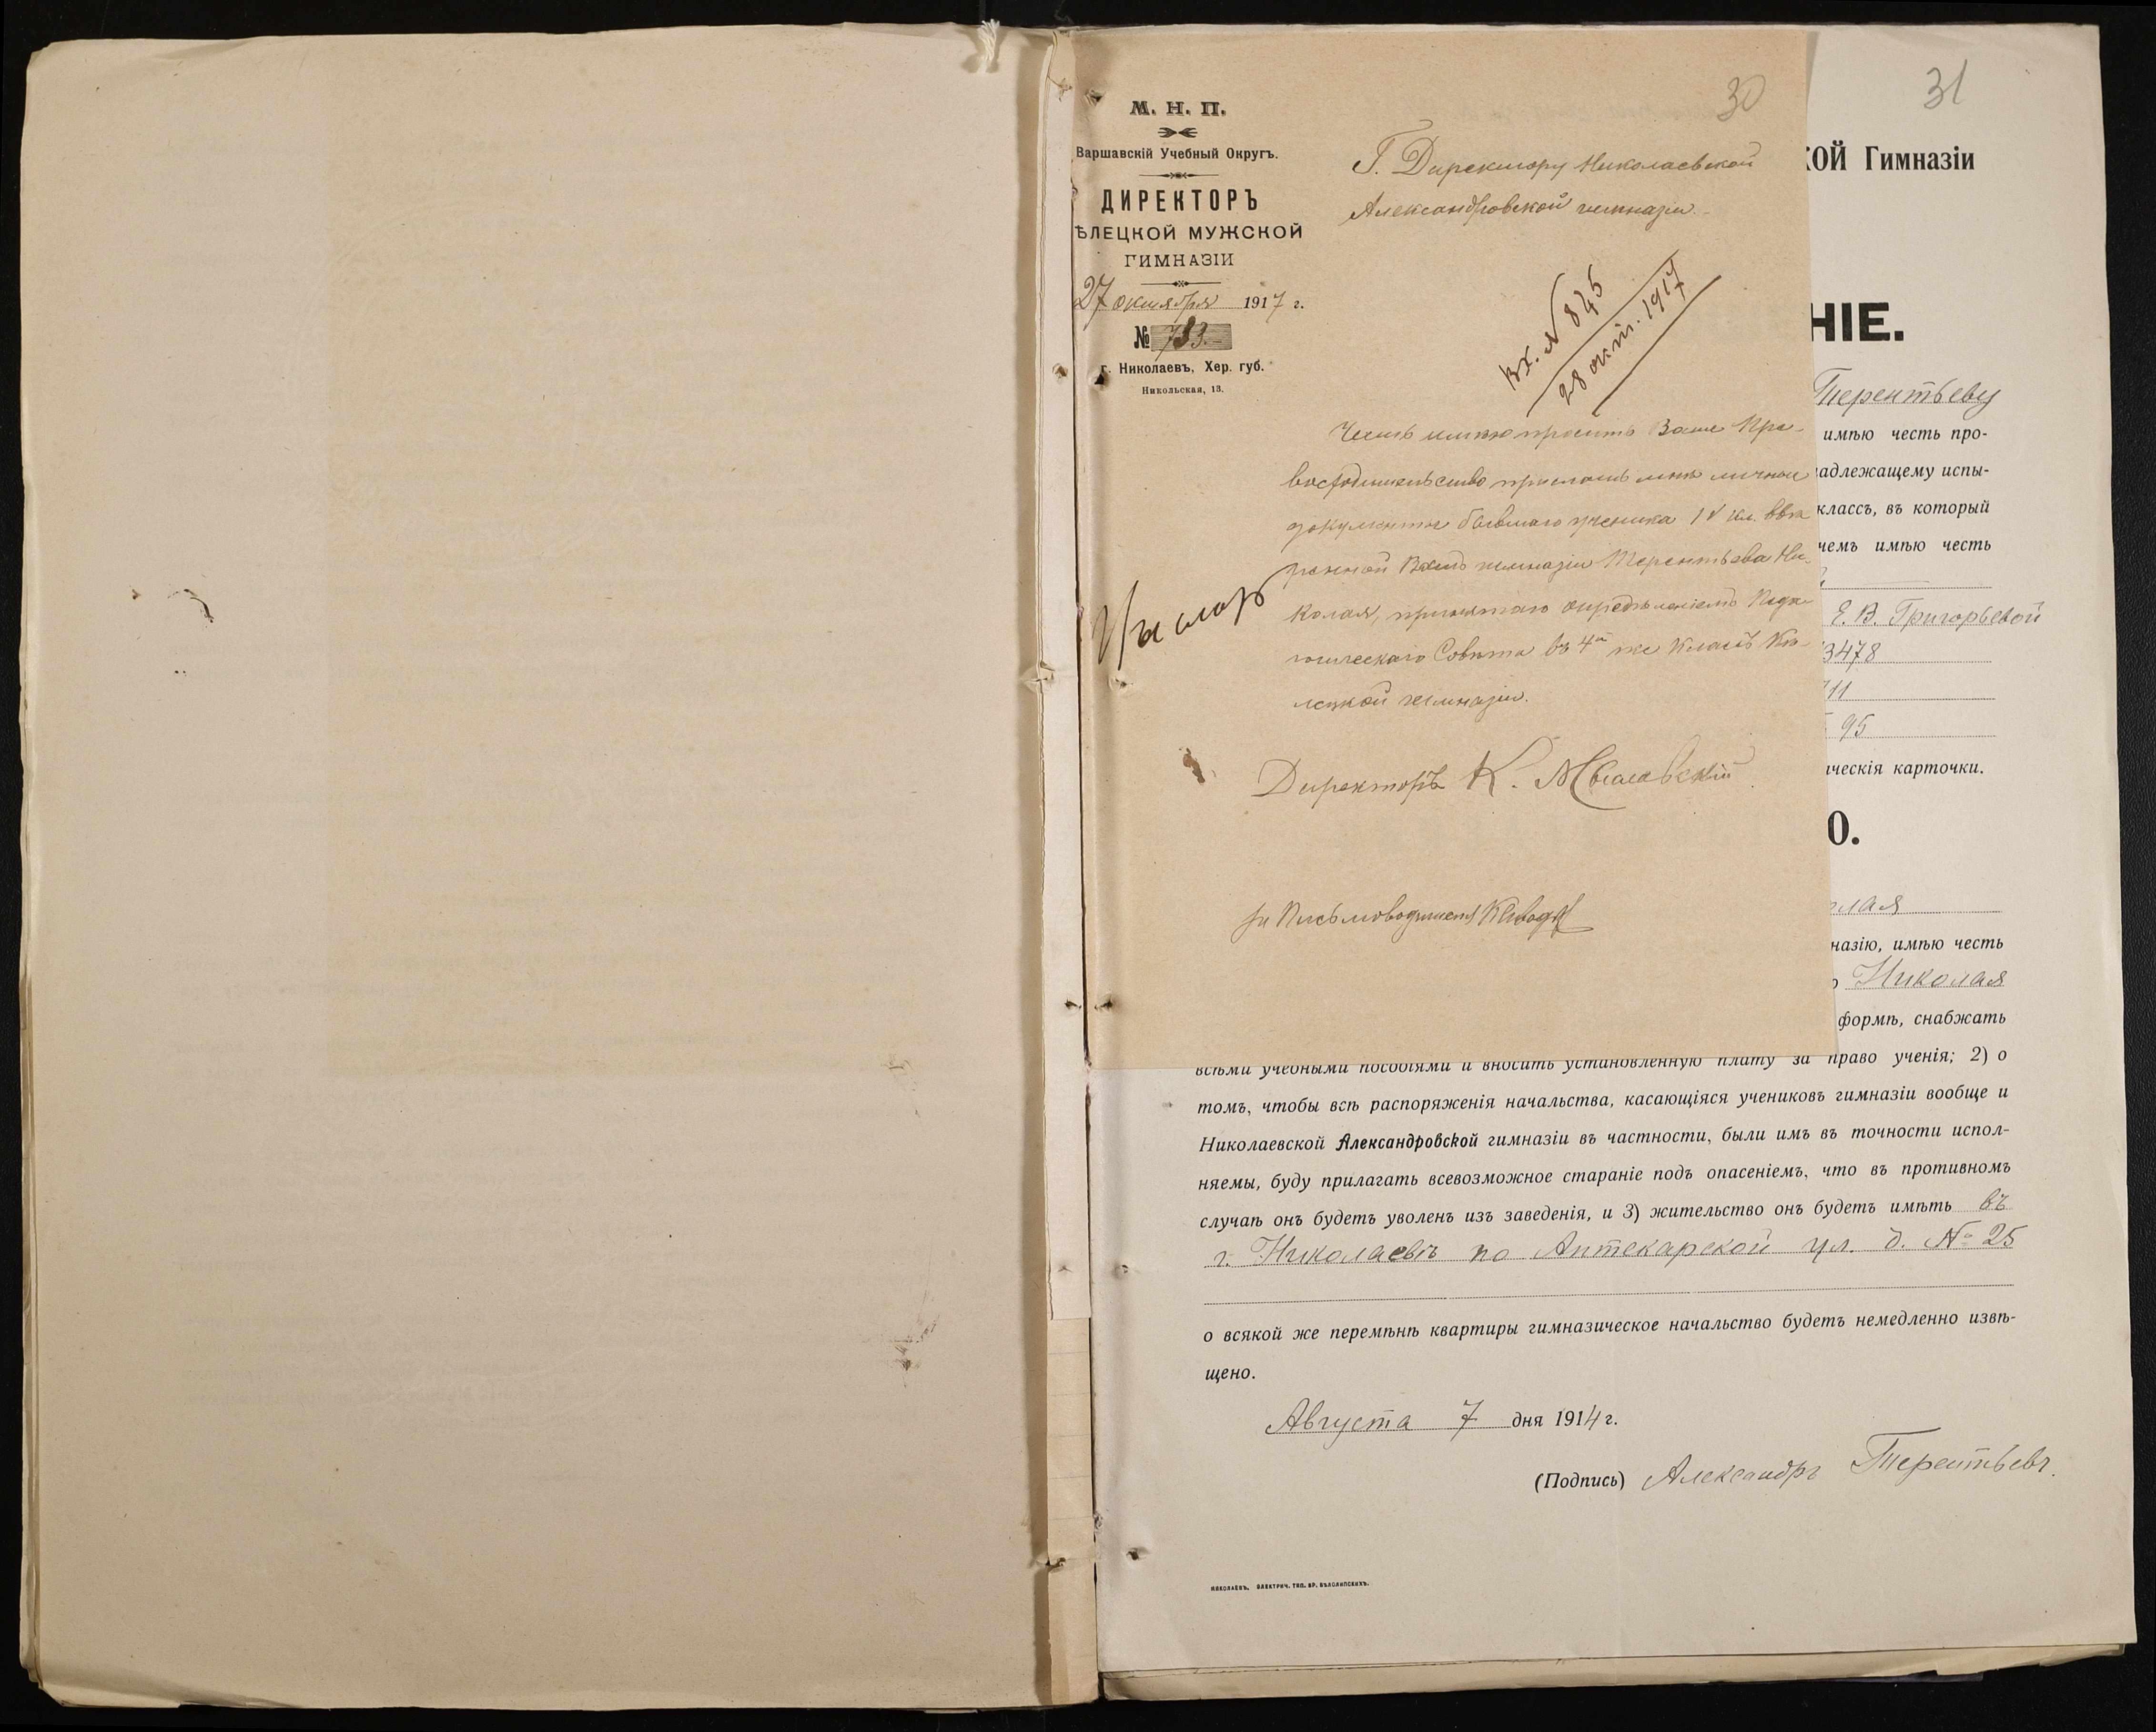 30
М. Н. П.
Варшавскій Учебный Округъ.
ДИРЕКТОРЪ
ѢЛЕЦКОЙ МУЖСКОЙ
ГИМНАЗІИ
27 октября 1917 г.
№ 783.
г. Николаевъ, Хер. губ.
Никольская, 13.
Г. Директору Николаевской
Александровской гимназіи.
Вх. № 845
28 окт. 1917
Честь имѣю просить Ваше Пре-
восходительство прислать мнѣ личные
документы бывшаго ученика IV кл. ввѣ
ренной Вамъ гимназіи Терентьева Ни-
колая, принятаго опредѣленіемъ Педа-
гогическаго Совѣта въ 4й же классъ Кѣ-
лецкой гимназіи.
Директоръ К.
Письмоводителя
31
КОЙ Гимназіи
НІЕ.
Терентьеву
имѣю честь про-
адлежащему испы-
классъ, въ который
чемъ имѣю честь
Е. В. Григорьевой
3478
11
95
ическія карточки.
О.
олая
назію, имѣю честь
Николая
формѣ, снабжать
всѣми учебными пособіями и вносить установленную плату за право ученія; 2) о
томъ, чтобы всѣ распоряженія начальства, касающіяся учениковъ гимназіи вообще и
Николаевской Александровской гимназіи въ частности, были имъ въ точности испол-
няемы, буду прилагать всевозможное стараніе подъ опасеніемъ, что въ противномъ
случаѣ онъ будетъ уволенъ изъ заведенія, и 3) жительство онъ будетъ имѣть въ
г. Николаевѣ по Аптекарской ул. д. № 25
о всякой же перемѣнѣ квартиры гимназическое начальство будетъ немедленно извѣ-
щено.
Августа 7 дня 1914 г.
(Подпись) Александръ Терентьевъ.
НИКОЛАЕВЪ, ЭЛЕКТРИЧ. ТИП. БР. БѢЛОЛИПСКИХЪ.